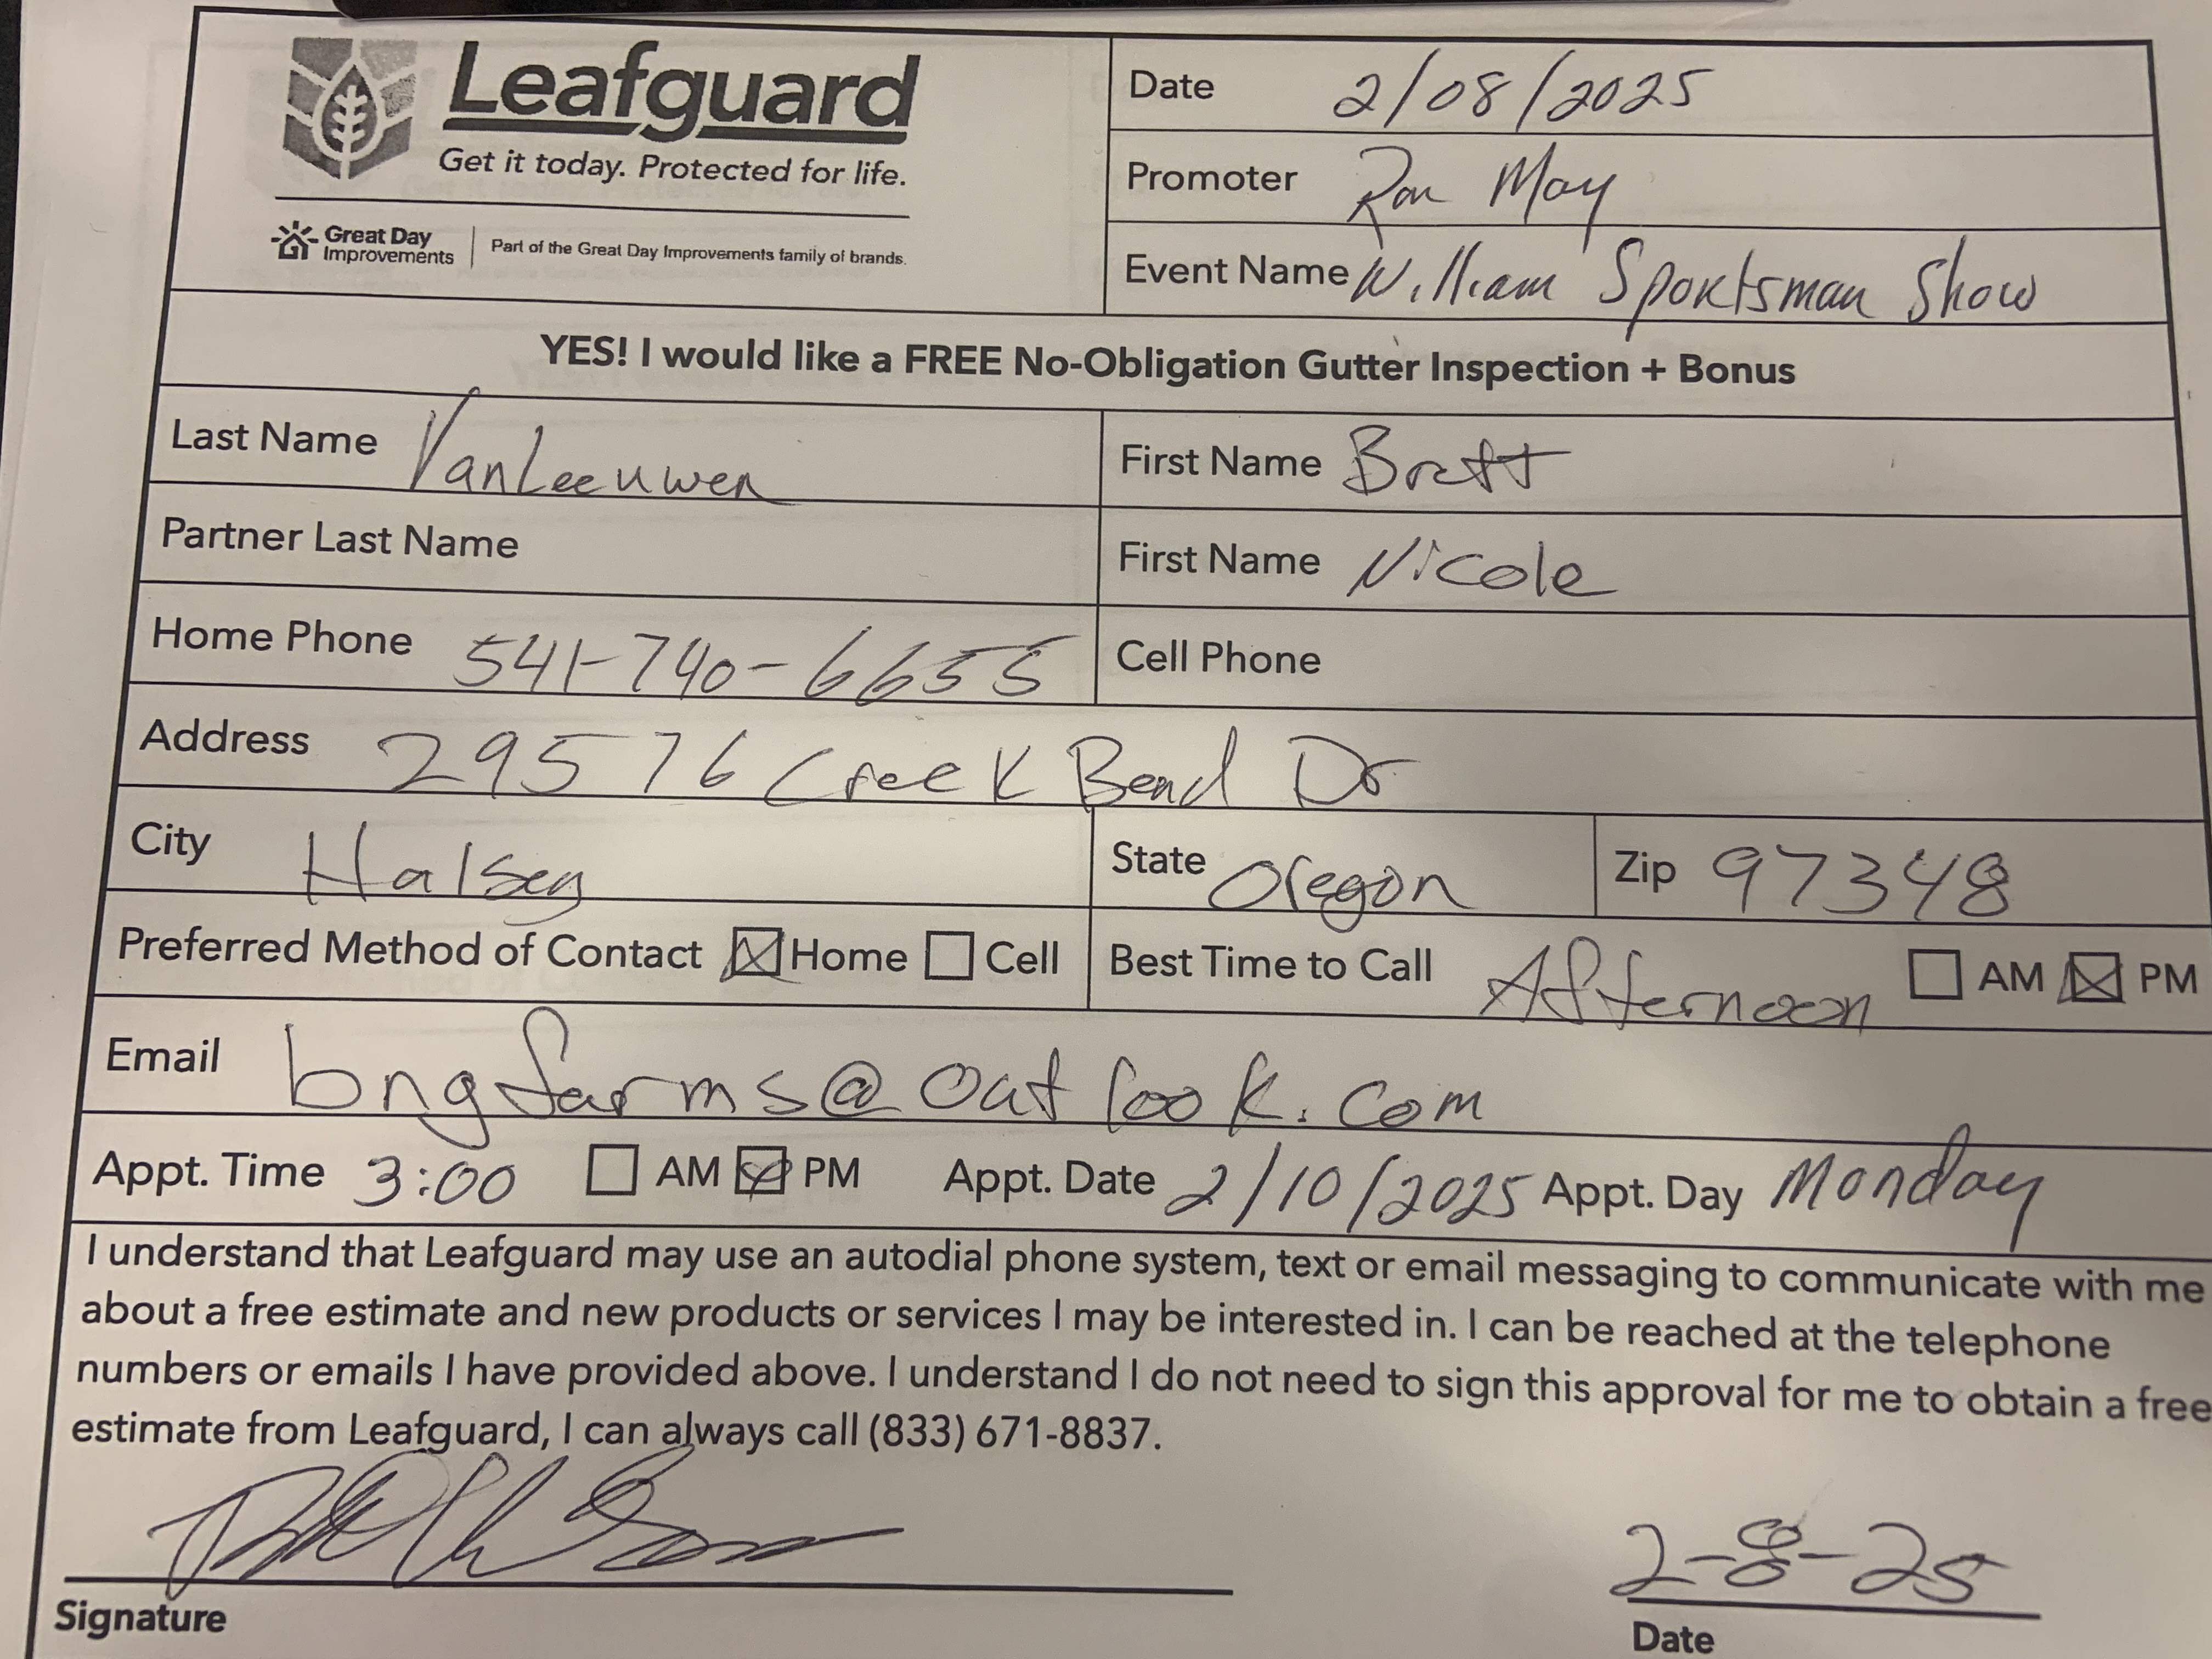 Leafguard
Get it today. Protected for life.
Great Day Improvements | Part of the Great Day Improvements family of brands.
Date 2/08/2025
Promoter Ron May
Event Name William Sportsman Show
YES! I would like a FREE No-Obligation Gutter Inspection + Bonus
Last Name VanLeeuwen First Name Brett
Partner Last Name First Name Nicole
Home Phone 541-740-6655 Cell Phone
Address 29576 Creek Bend Dr
City Halsey State Oregon Zip 97348
Preferred Method of Contact ☒ Home ☐ Cell Best Time to Call Afternoon ☐ AM ☒ PM
Email bngfarms@outlook.com
Appt. Time 3:00 ☐ AM ☒ PM Appt. Date 2/10/2025 Appt. Day Monday
I understand that Leafguard may use an autodial phone system, text or email messaging to communicate with me
about a free estimate and new products or services I may be interested in. I can be reached at the telephone
numbers or emails I have provided above. I understand I do not need to sign this approval for me to obtain a free
estimate from Leafguard, I can always call (833) 671-8837.
2-8-25
Signature Date